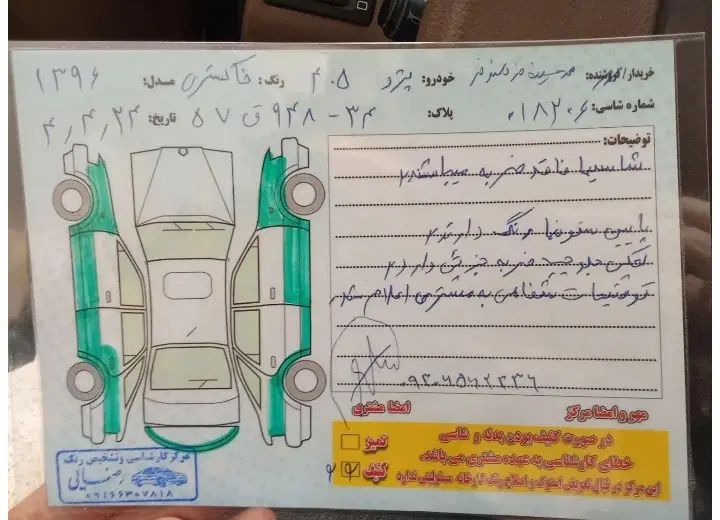 خریدار/فروشنده: محمدحسین خودرو: پژو ۴۰۵ رنگ: خاکستری مدل: ۱۳۹۶
شماره شاسی: ۰۱۸۲۰۶ پلاک: ۳۴-۹۴۸ ق ۵۷ تاریخ: ۴٫۴٫۲۴
توضیحات:
شاسیها فاقد ضربه میباشد
پایین ستونها رنگ دارند
جلو چپ ضربه جزئی دارد
توضیحات شفاهی به مشتری اعلام شد
مهر و امضا مرکز امضا مشتری
در صورت کثیف بودن بدنه و شاسی
خطای کارشناسی به عهده مشتری می باشد.
این مرکز در قبال تعویض استوک و اصلاح رنگ کارخانه مسئولیتی ندارد
تمیز
کثیف
مرکز کارشناسی و تشخیص رنگ
رضایی
۰۹۱۶۶۳۰۷۸۱۸